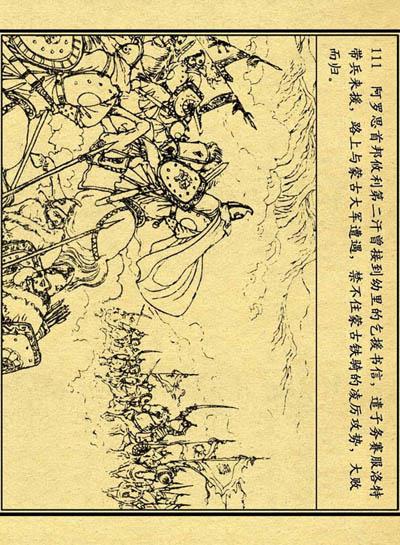 111 阿罗思首邦攸利第二汗曾接到幼里的乞援书信，遣子务赛服洛特
带兵来援，路上与蒙古大军遭遇，禁不住蒙古铁骑的凌厉攻势，大败
而归。